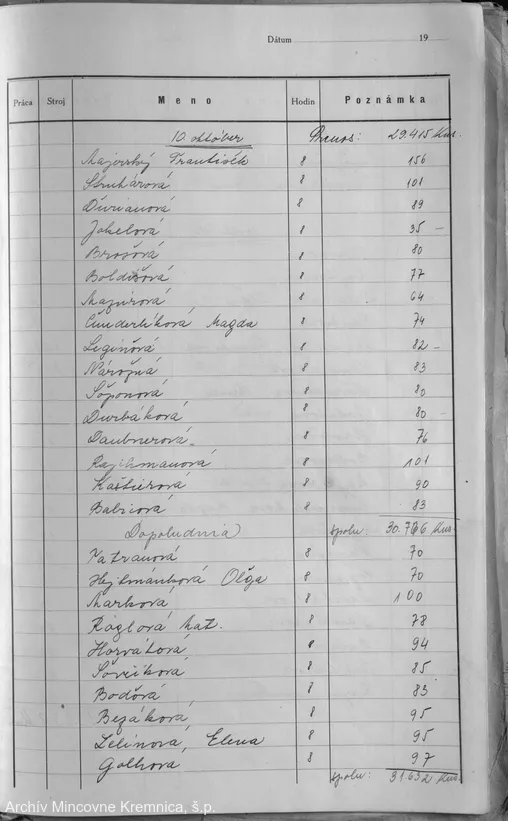 Dátum 19
Práca Stroj Meno Hodin Poznámka
10. október Prenos: 29.415 Kus.
Majerský František 8 156
Struhárová 8 101
Ďurianová 8 89
Jokelová 8 35 –
Brošová 8 80
Boldišová 8 77
Mazúrová 8 64
Čunderlíková Magda 8 74
Leginová 8 82 –
Nárožná 8 83
Šoponová 8 80
Ďurbáková 8 80 –
Daubnerová 8 76
Rajchmanová 8 101
Kaštierová 8 90
Babicová 8 83
Dopoludnia spolu: 30.766 Kus.
Patranová 8 70
Hejlmánková Oľga 8 70
Marková 8 100
Ráglová Mat. 8 78
Horvátová 8 94
Šovčíková 8 85
Bodová 8 83
Bezáková 8 95
Lelinová, Elena 8 95
Golhova 8 97
spolu: 31.632 Kus.
Archív Mincovne Kremnica, š.p.